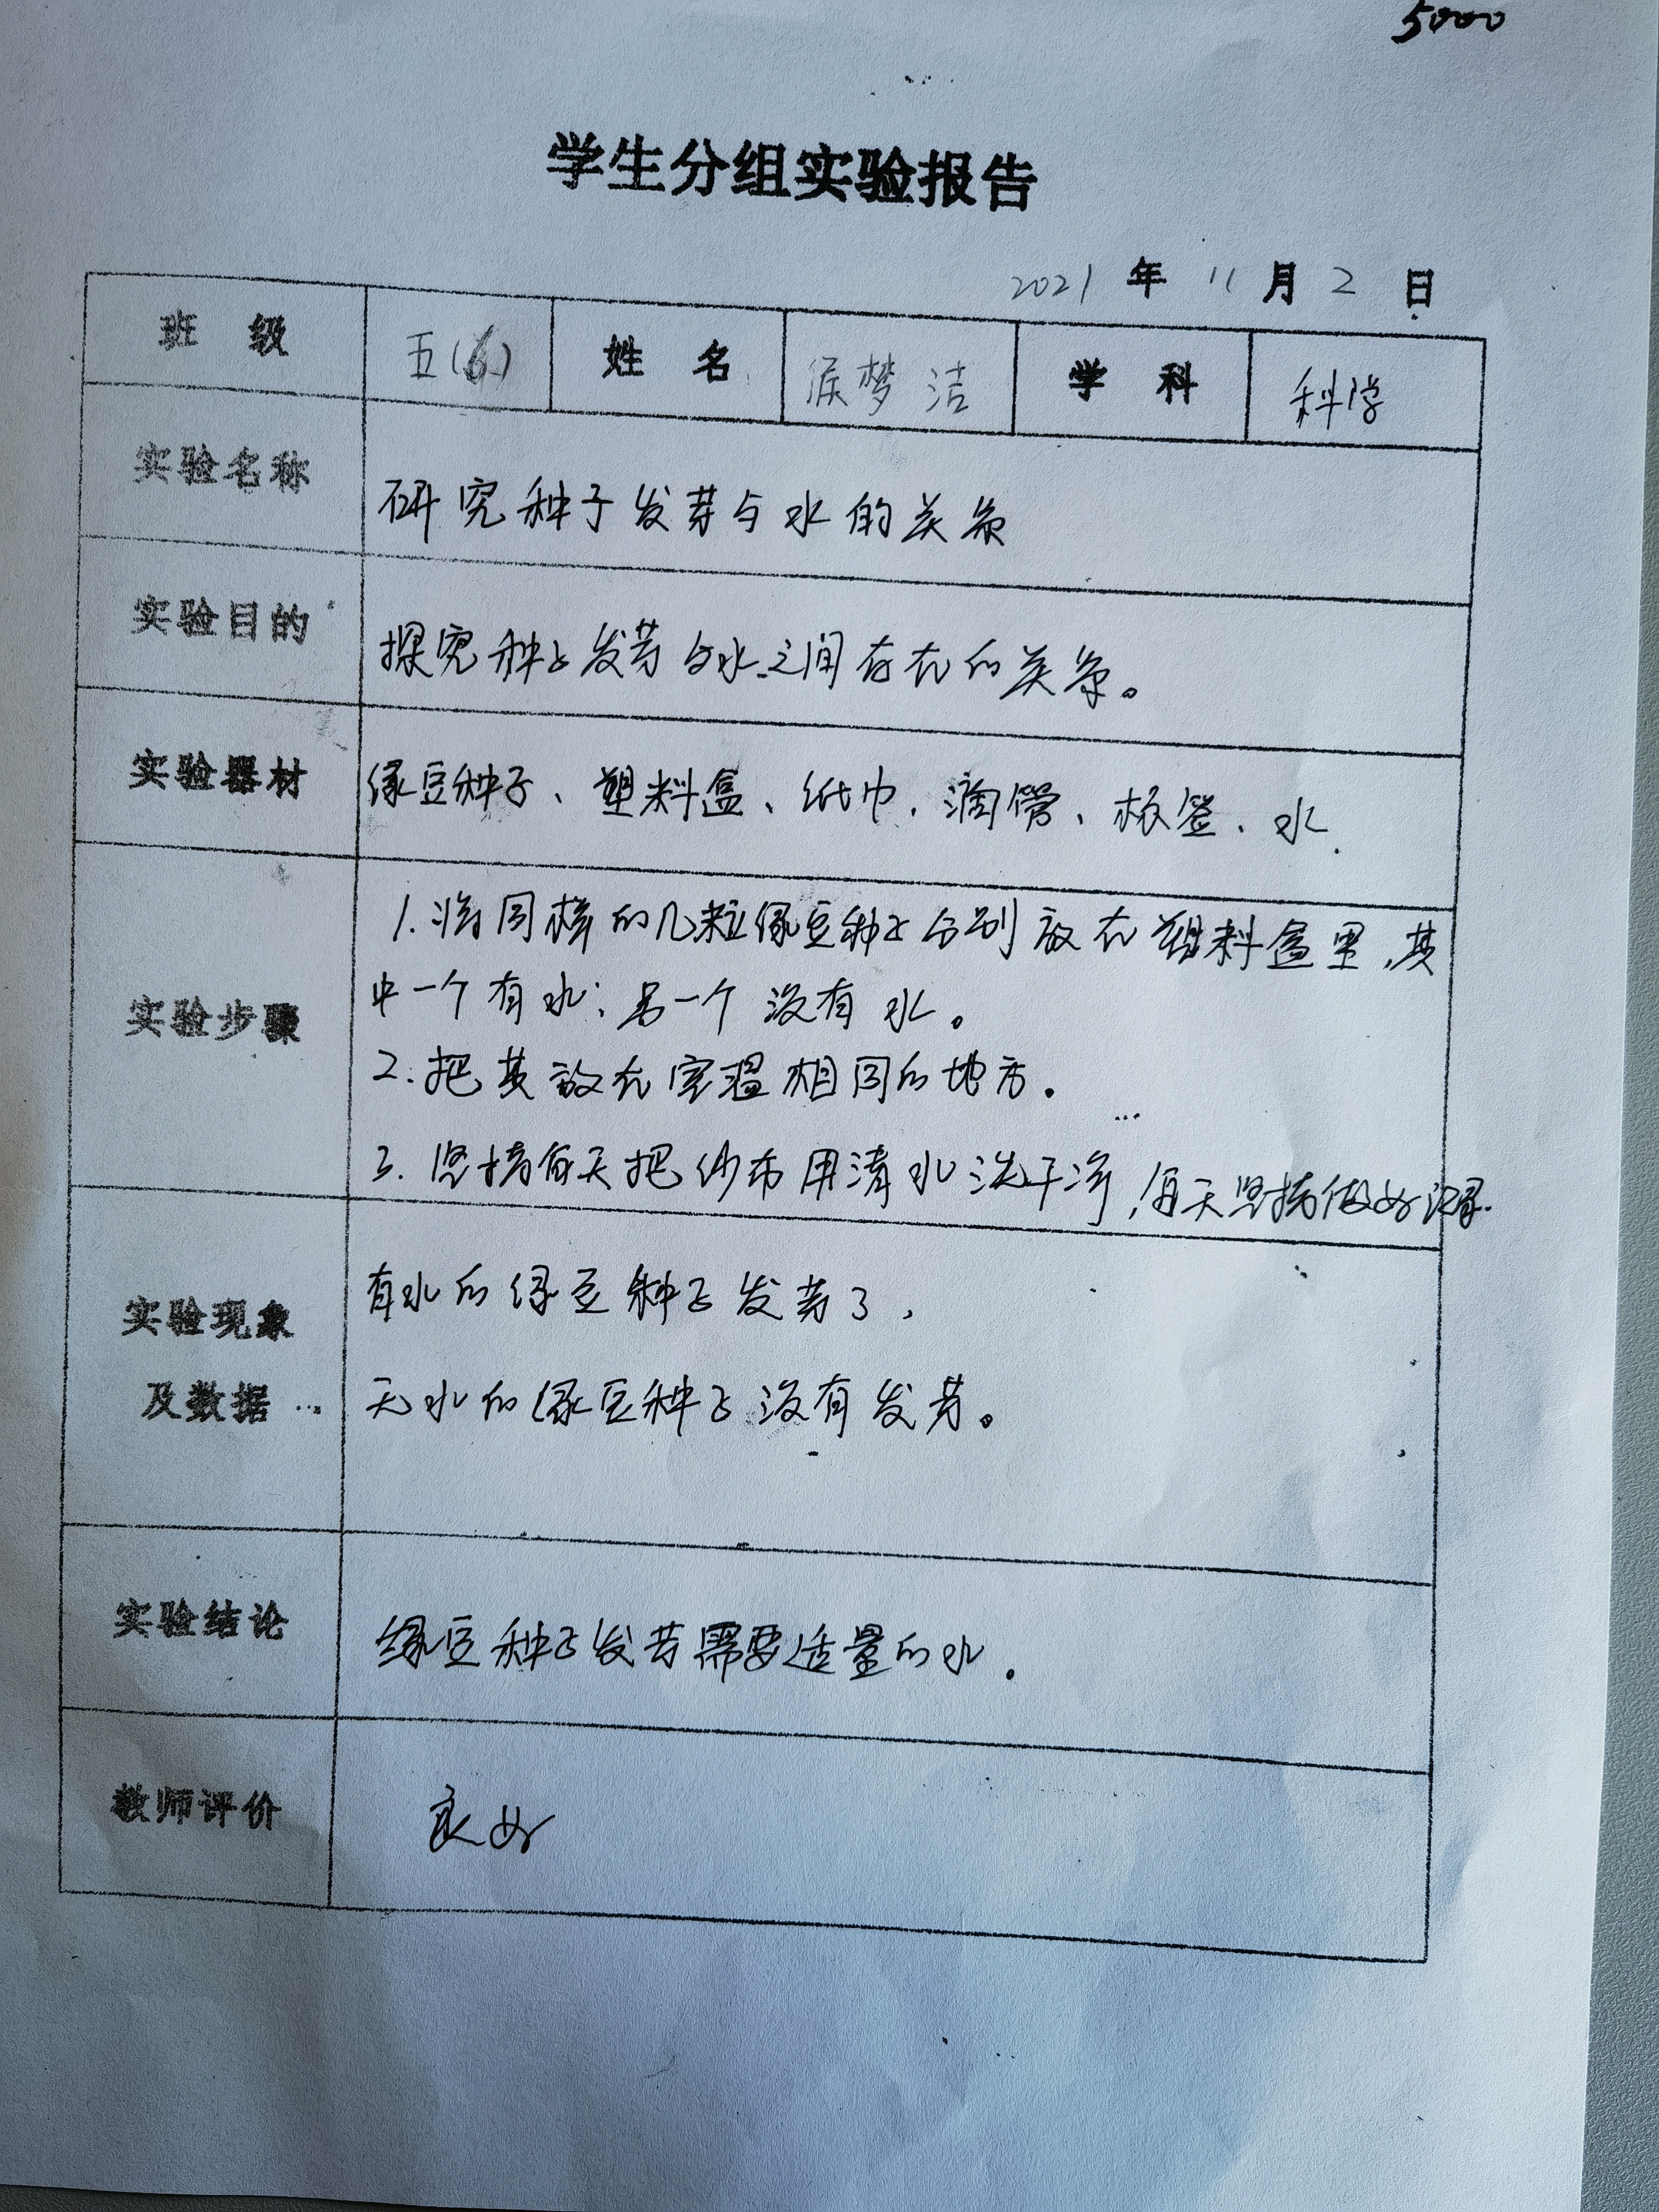 5000
学生分组实验报告
2021 年 11 月 2 日
班 级 五(6) 姓 名 侯梦洁 学 科 科学
实验名称 研究种子发芽与水的关系
实验目的 探究种子发芽与水之间存在的关系。
实验器材 绿豆种子、塑料盒、纸巾、滴管、标签、水.
1.将同样的几粒绿豆种子分别放在塑料盒里,其
中一个有水;另一个没有水。
实验步骤
2.把其放在室温相同的地方.
3.坚持每天把纱布用清水洗干净,每天坚持做好记录.
有水的绿豆种子发芽了,
实验现象
及数据 无水的绿豆种子没有发芽。
实验结论 绿豆种子发芽需要适量的水.
教师评价 良好